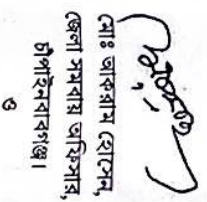 মোঃ আকরাম হোসেন,
জেলা সমবায় অফিসার,
চাঁপাইনবাবগঞ্জ।
ও